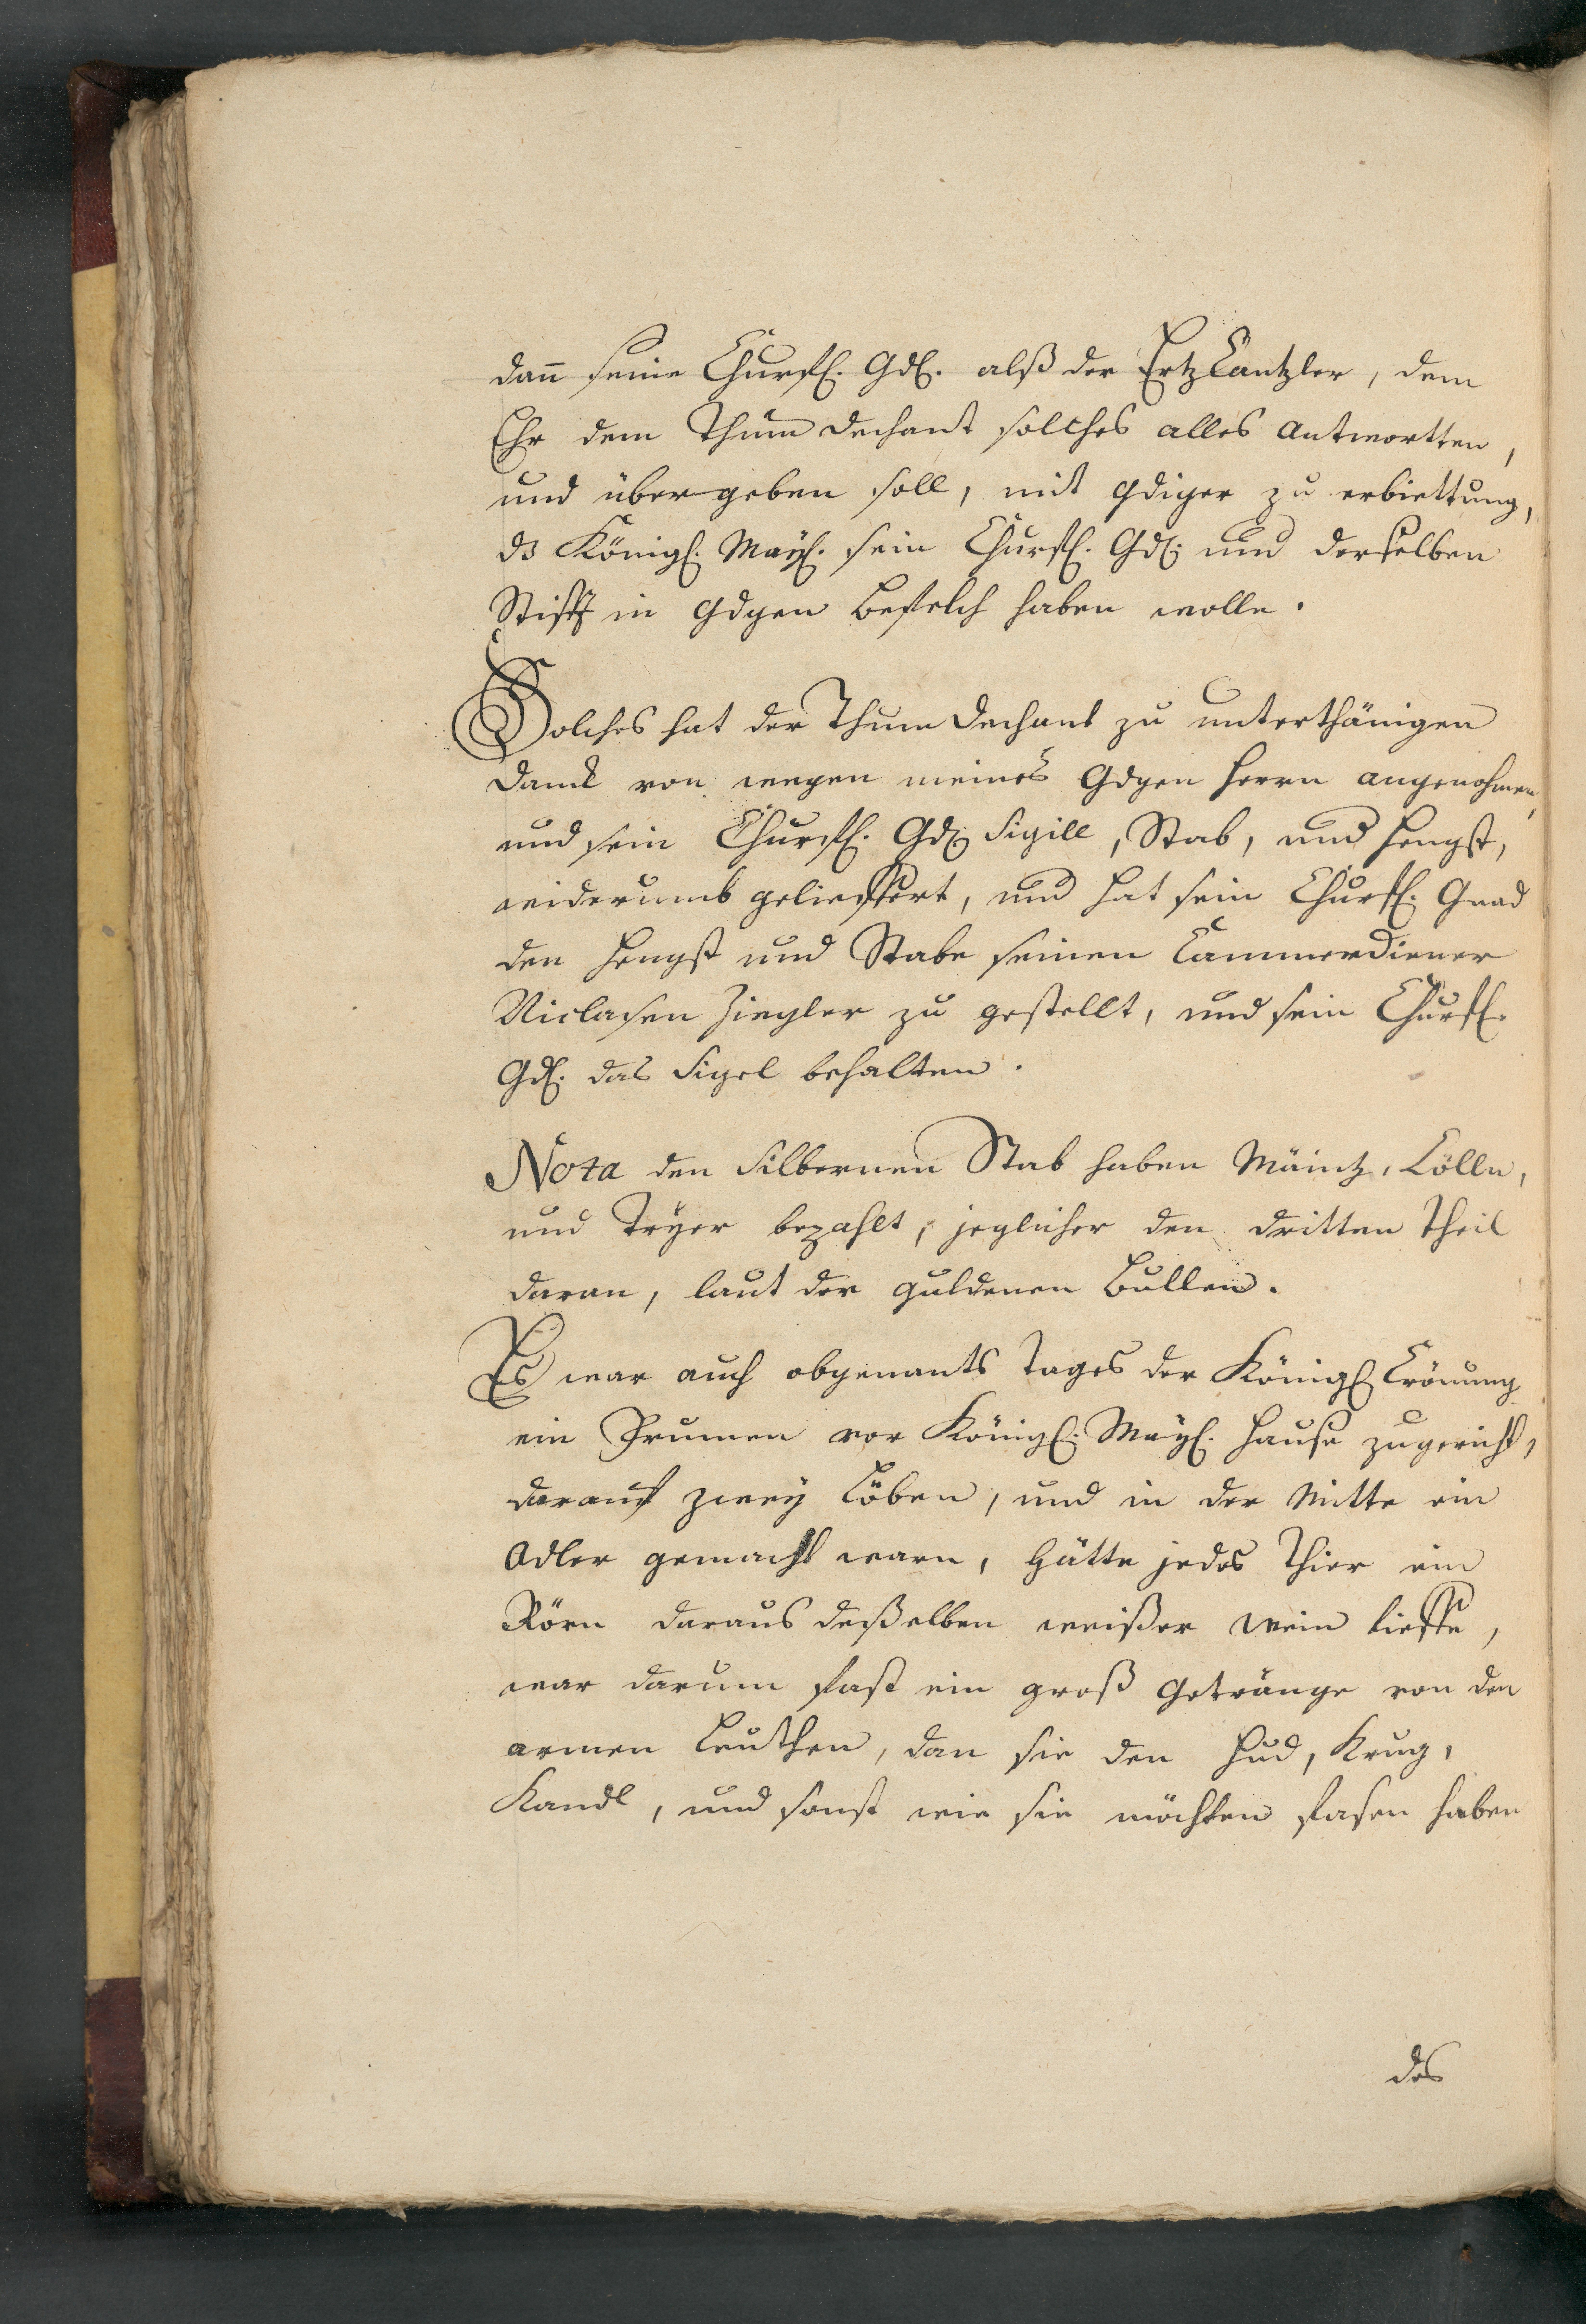 dann seine Churfl. Gdl. alß der Ertz Cantzler, dem
Ehr dem Thum dechant solches alles Antwortten,
und übergeben soll, mit gdiger zu erbiettung,
dz Königl. Mayl. sein Churfl. Gdl. und derselben
Stifft in Gdgen befelch haben wolle.
Solches hat der Thum dechant zu unterthänigen
danck von wegen meines Gdgen Herrn angenohmen,
und sein Churfl. Gdl. Sigill, Stab, und Hengst,
widerumb geliefffert, und hat sein Churfl. Gnad
den Hengst und Stabe seinen Cammerdiener
Niclasen Ziegler zu gestellt, und sein Churfl.
Gdl. das Sigel behalten.
Nota den Silbernen Stab haben Mäintz, Cölln,
und Tryer bezahlt, jeglicher den dritten Theil
daran, laut der guldenen Bullen.
Es war auch obgenants Tages der Königl Crönung
ein Brunnen vor Königl. Mayl. Hause zugericht,
darauf zwey Löben, und in der Mitte ein
Adler gemacht warn, Hätte jedes Thier ein
Rörn daraus deßelben weißer Wein lieffe,
war darum fast ein groß Getränge von den
armen Leuthen, dan sie den Hud, Krug,
Kandl, und sonst wie sie möchten fasen haben
des